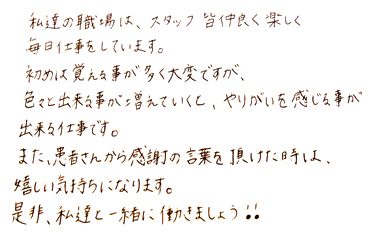 私達の職場は、スタッフ皆仲良く楽しく
毎日仕事をしています。
初めは覚える事が多く大変ですが、
色々と出来る事が増えていくと、やりがいを感じる事が
出来る仕事です。
また、患者さんから感謝の言葉を頂けた時は、
嬉しい気持ちになります。
是非、私達と一緒に働きましょう!!